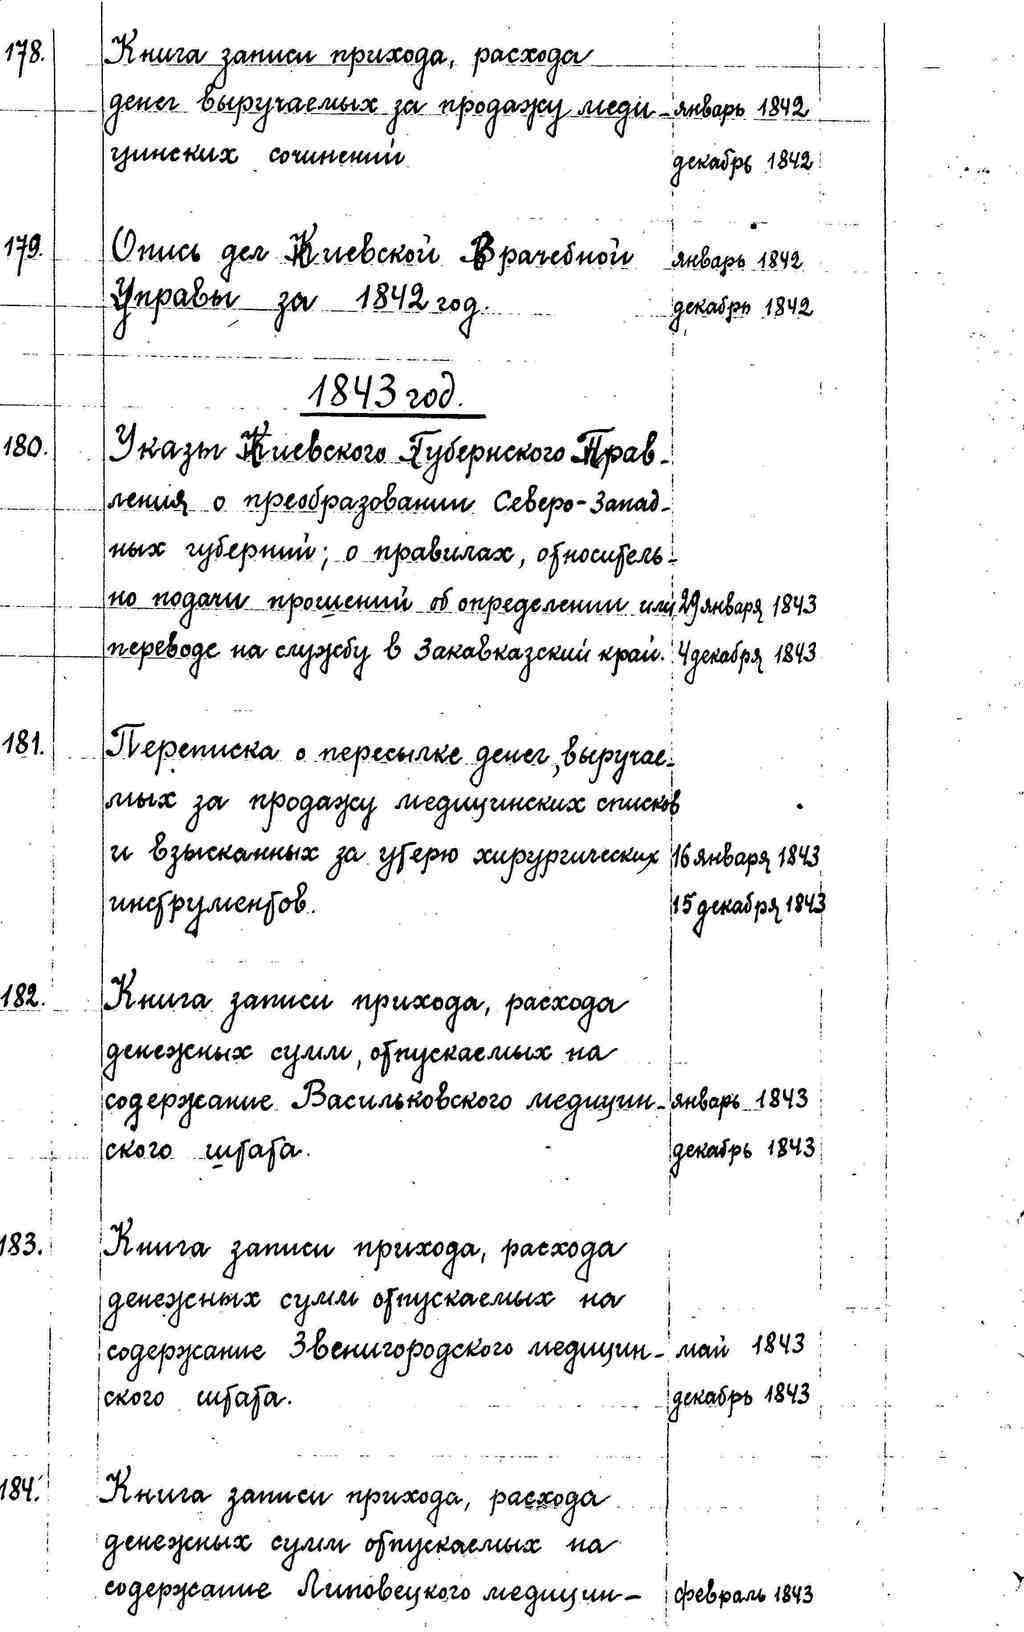 178. Книга записи прихода, расхода
денег выручаемых за продажу меди- январь 1842
цинских сочинений декабрь 1842
179. Опись дел Киевской Врачебной январь 1842
Управы за 1842 год. декабрь 1842
1843 год.
180. Указы Киевского Губернского Прав-
ления о преобразовании Северо-Запад-
ных губерний; о правилах, относитель-
но подачи прошений об определении или 29 января 1843
переводе на службу в Закавказский край. 4 декабря 1843
181. Переписка о пересылке денег, выручае-
мых за продажу медицинских списков
и взысканных за утерю хирургических 16 января 1843
инструментов. 15 декабря 1843
182. Книга записи прихода, расхода
денежных сумм, отпускаемых на
содержание Васильковского медицин- январь 1843
ского штата. декабрь 1843
183. Книга записи прихода, расхода
денежных сумм отпускаемых на
содержание Звенигородского медицин- май 1843
ского штата. декабрь 1843
184. Книга записи прихода, расхода
денежных сумм отпускаемых на
содержание Липовецкого медицин- февраль 1843